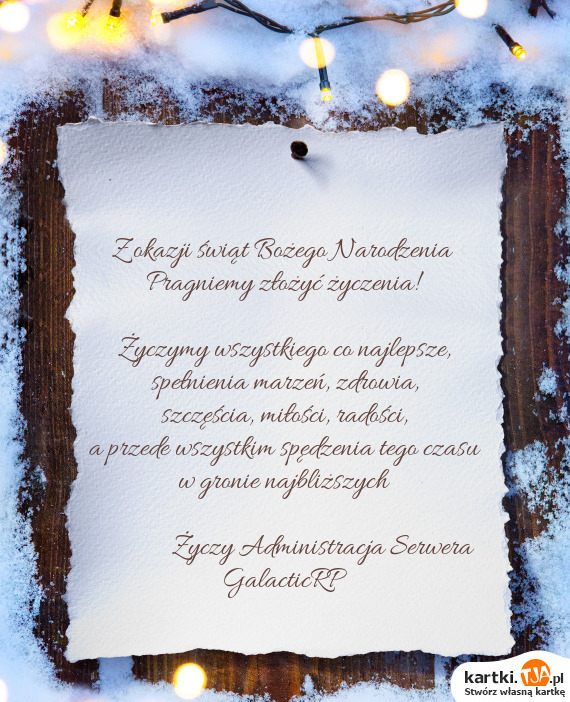 Z okazji świąt Bożego Narodzenia
Pragniemy złożyć życzenia!
Życzymy wszystkiego co najlepsze,
spełnienia marzeń, zdrowia,
szczęścia, miłości, radości,
a przede wszystkim spędzenia tego czasu
w gronie najbliższych
Życzy Administracja Serwera
GalacticRP
kartki.TJA.pl
Stwórz własną kartkę